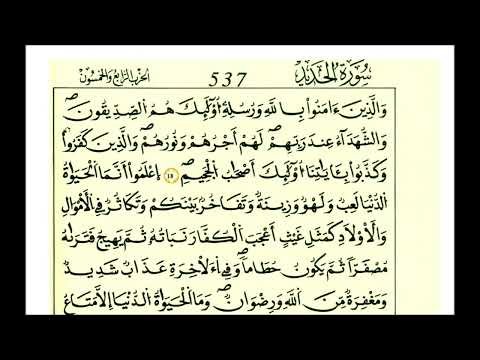 سُورَةُ الْحَدِيدِ 537 الحزب الرابع والخمسون
وَالذِينَ ءَامَنُواْ بِاللَّهِ وَرُسُلِهِۦٓ أُوْلَٰٓئِكَ هُمُ الصِّدِّيقُونَۖ
وَالشُّهَدَآءُ عِندَ رَبِّهِمْۖ لَهُمْ أَجْرُهُمْ وَنُورُهُمْۖ وَالذِينَ كَفَرُواْ
وَكَذَّبُواْ بِـَٔايَٰتِنَآ أُوْلَٰٓئِكَ أَصْحَٰبُ الْجَحِيمِۖ ١٨ اِعْلَمُوٓاْ أَنَّمَا الْحَيَوٰةُ
الدُّنْيَا لَعِبٌ وَلَهْوٌ وَزِينَةٌ وَتَفَاخُرٌۢ بَيْنَكُمْ وَتَكَاثُرٌ فِي الْأَمْوَٰلِ
وَالْأَوْلَٰدِ كَمَثَلِ غَيْثٍ أَعْجَبَ الْكُفَّارَ نَبَاتُهُۥ ثُمَّ يَهِيجُ فَتَرَىٰهُ
مُصْفَرّاً ثُمَّ يَكُونُ حُطَٰماًۖ وَفِي الْأٓخِرَةِ عَذَابٌ شَدِيدٌ
وَمَغْفِرَةٌ مِّنَ اللَّهِ وَرِضْوَٰنٌۖ وَمَا الْحَيَوٰةُ الدُّنْيَآ إِلَّا مَتَٰعُ